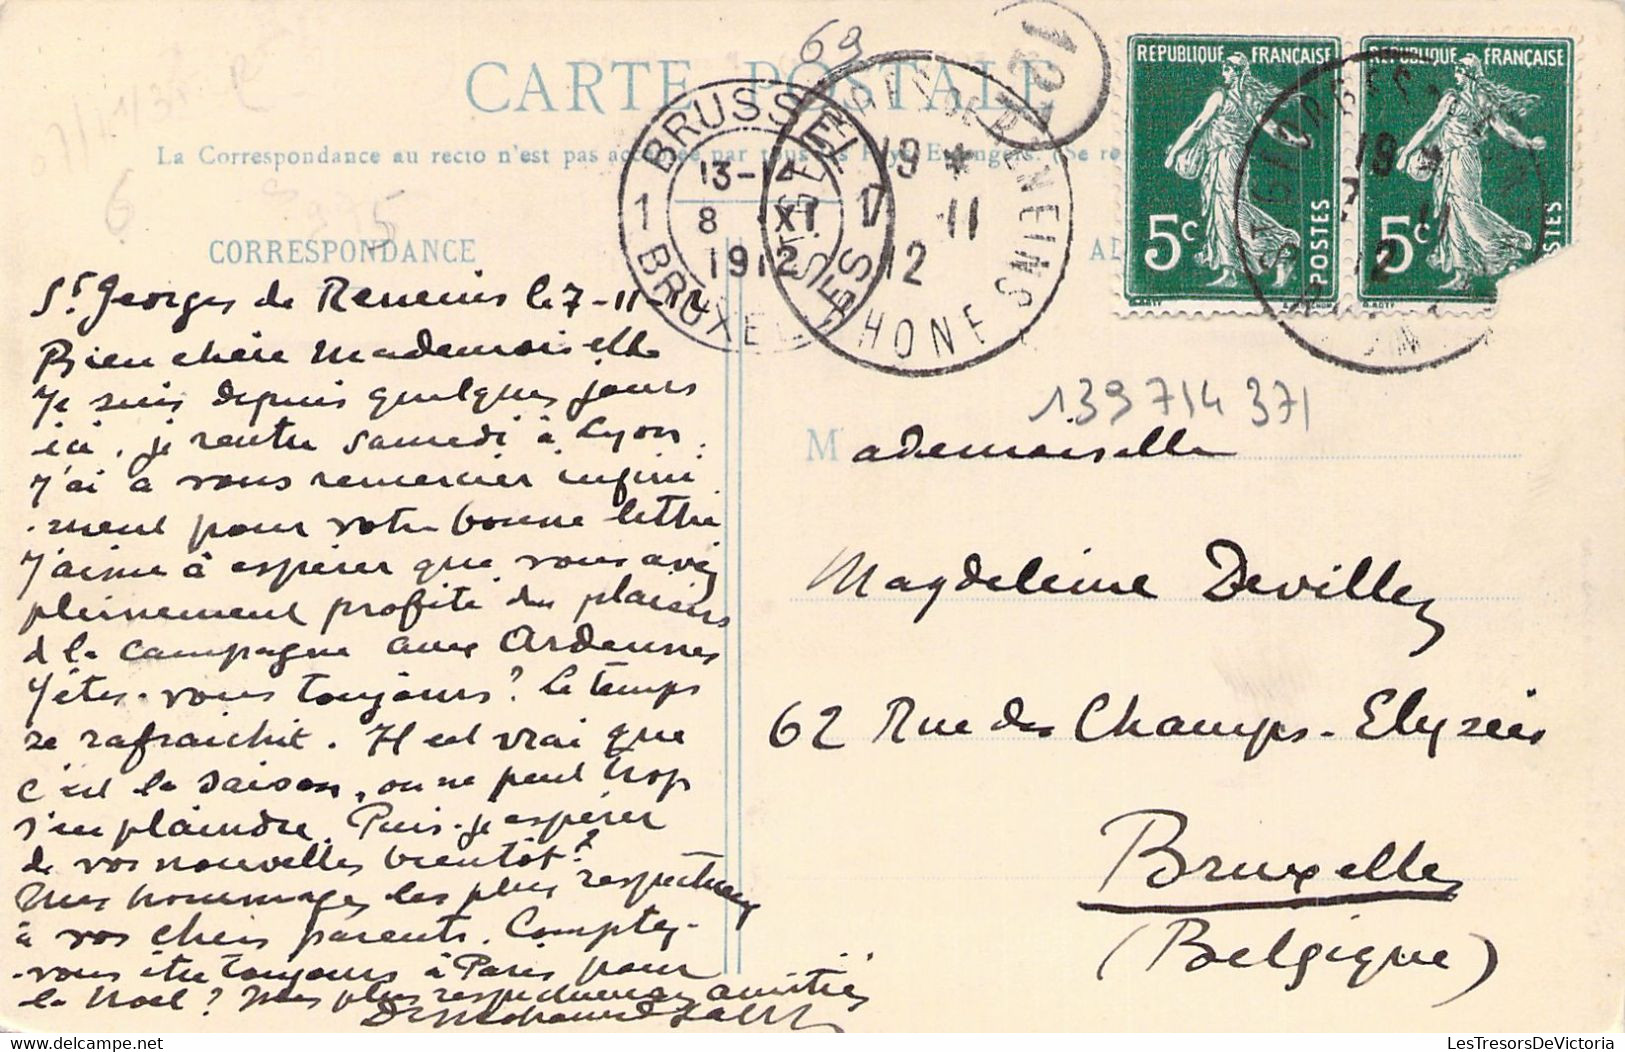 69
CARTE POSTALE
La Correspondance au recto n'est pas acceptée par tous les Pays Etrangers. (Se re
CORRESPONDANCE
AD
1 BRUSSEL
13-14
8 XI
1912
BRUXELLES
ST GEORGES DE RENEINS
19 *
7 -11
12
RHONE
REPUBLIQUE FRANÇAISE
5c
POSTES
REPUBLIQUE FRANÇAISE
5c
POSTES
6
975
139714 371
St Georges de Reneins le 7-11-12
Bien chère Mademoiselle
Je suis depuis quelques jours
ici, je rentre samedi à Lyon.
J'ai à vous remercier infini
-ment pour votre bonne lettre
J'aime à espérer que vous avez
pleinement profité des plaisirs
d la campagne aux Ardennes
Y êtes-vous toujours? Le temps
se rafraichit. Il est vrai que
c'est la saison, on ne peut trop
s'en plaindre. Puis-je espérer
de vos nouvelles bientôt?
Mes hommages les plus respectueux
à vos chers parents. Comptez-
-vous être toujours à Paris pour
la Noël? Mes plus respectueuses amitiés
Mademoiselle
Magdeleine Devillez
62 Rue des Champs-Elysées
Bruxelles
(Belgique)
LesTresorsDeVictoria